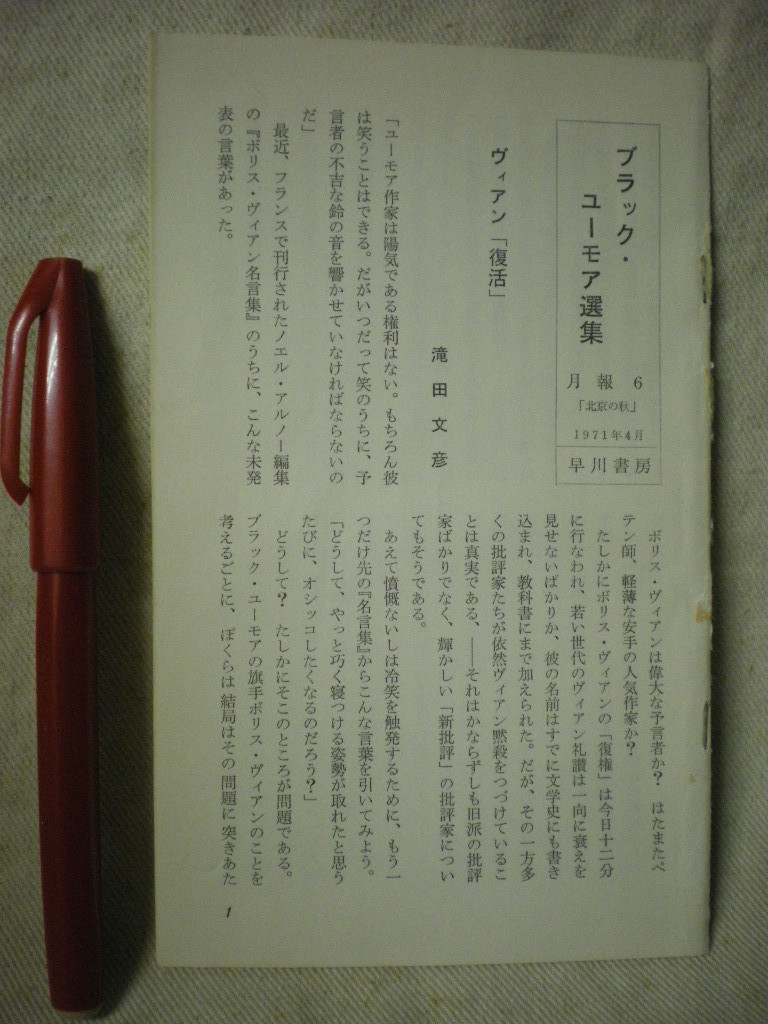 ブラック・
ユーモア選集
月報 6
「北京の秋」
1971年4月
早川書房
ヴィアン「復活」
滝田文彦
「ユーモア作家は陽気である権利はない。もちろん彼
は笑うことはできる。だがいつだって笑のうちに、予
言者の不吉な鈴の音を響かせていなければならないの
だ」
最近、フランスで刊行されたノエル・アルノー編集
の『ボリス・ヴィアン名言集』のうちに、こんな未発
表の言葉があった。
ボリス・ヴィアンは偉大な予言者か? はたまたペ
テン師、軽薄な安手の人気作家か?
たしかにボリス・ヴィアンの「復権」は今日十二分
に行なわれ、若い世代のヴィアン礼讃は一向に衰えを
見せないばかりか、彼の名前はすでに文学史にも書き
込まれ、教科書にまで加えられた。だが、その一方多
くの批評家たちが依然ヴィアン黙殺をつづけているこ
とは真実である、——それはかならずしも旧派の批評
家ばかりでなく、輝かしい「新批評」の批評家につい
てもそうである。
あえて憤慨ないしは冷笑を触発するために、もう一
つだけ先の『名言集』からこんな言葉を引いてみよう。
「どうして、やっと巧く寝つける姿勢が取れたと思う
たびに、オシッコしたくなるのだろう?」
どうして? たしかにそこのところが問題である。
ブラック・ユーモアの旗手ボリス・ヴィアンのことを
考えるごとに、ぼくらは結局はその問題に突きあた
1